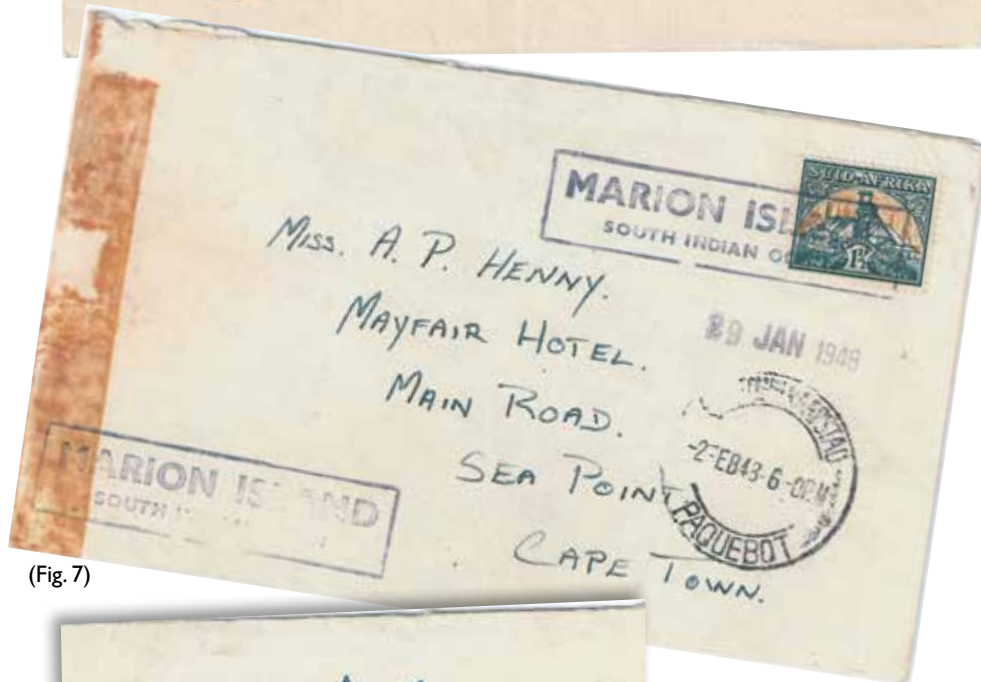 MARION ISL
SOUTH INDIAN O
SUID-AFRIKA
1½
Miss. A. P. HENNY.
MAYFAIR HOTEL.
MAIN ROAD.
SEA POINT
CAPE TOWN.
29 JAN 1948
KAAPSTAD
-2 FEB 48-6-0PM
PAQUEBOT
MARION ISLAND
SOUTH
(Fig. 7)